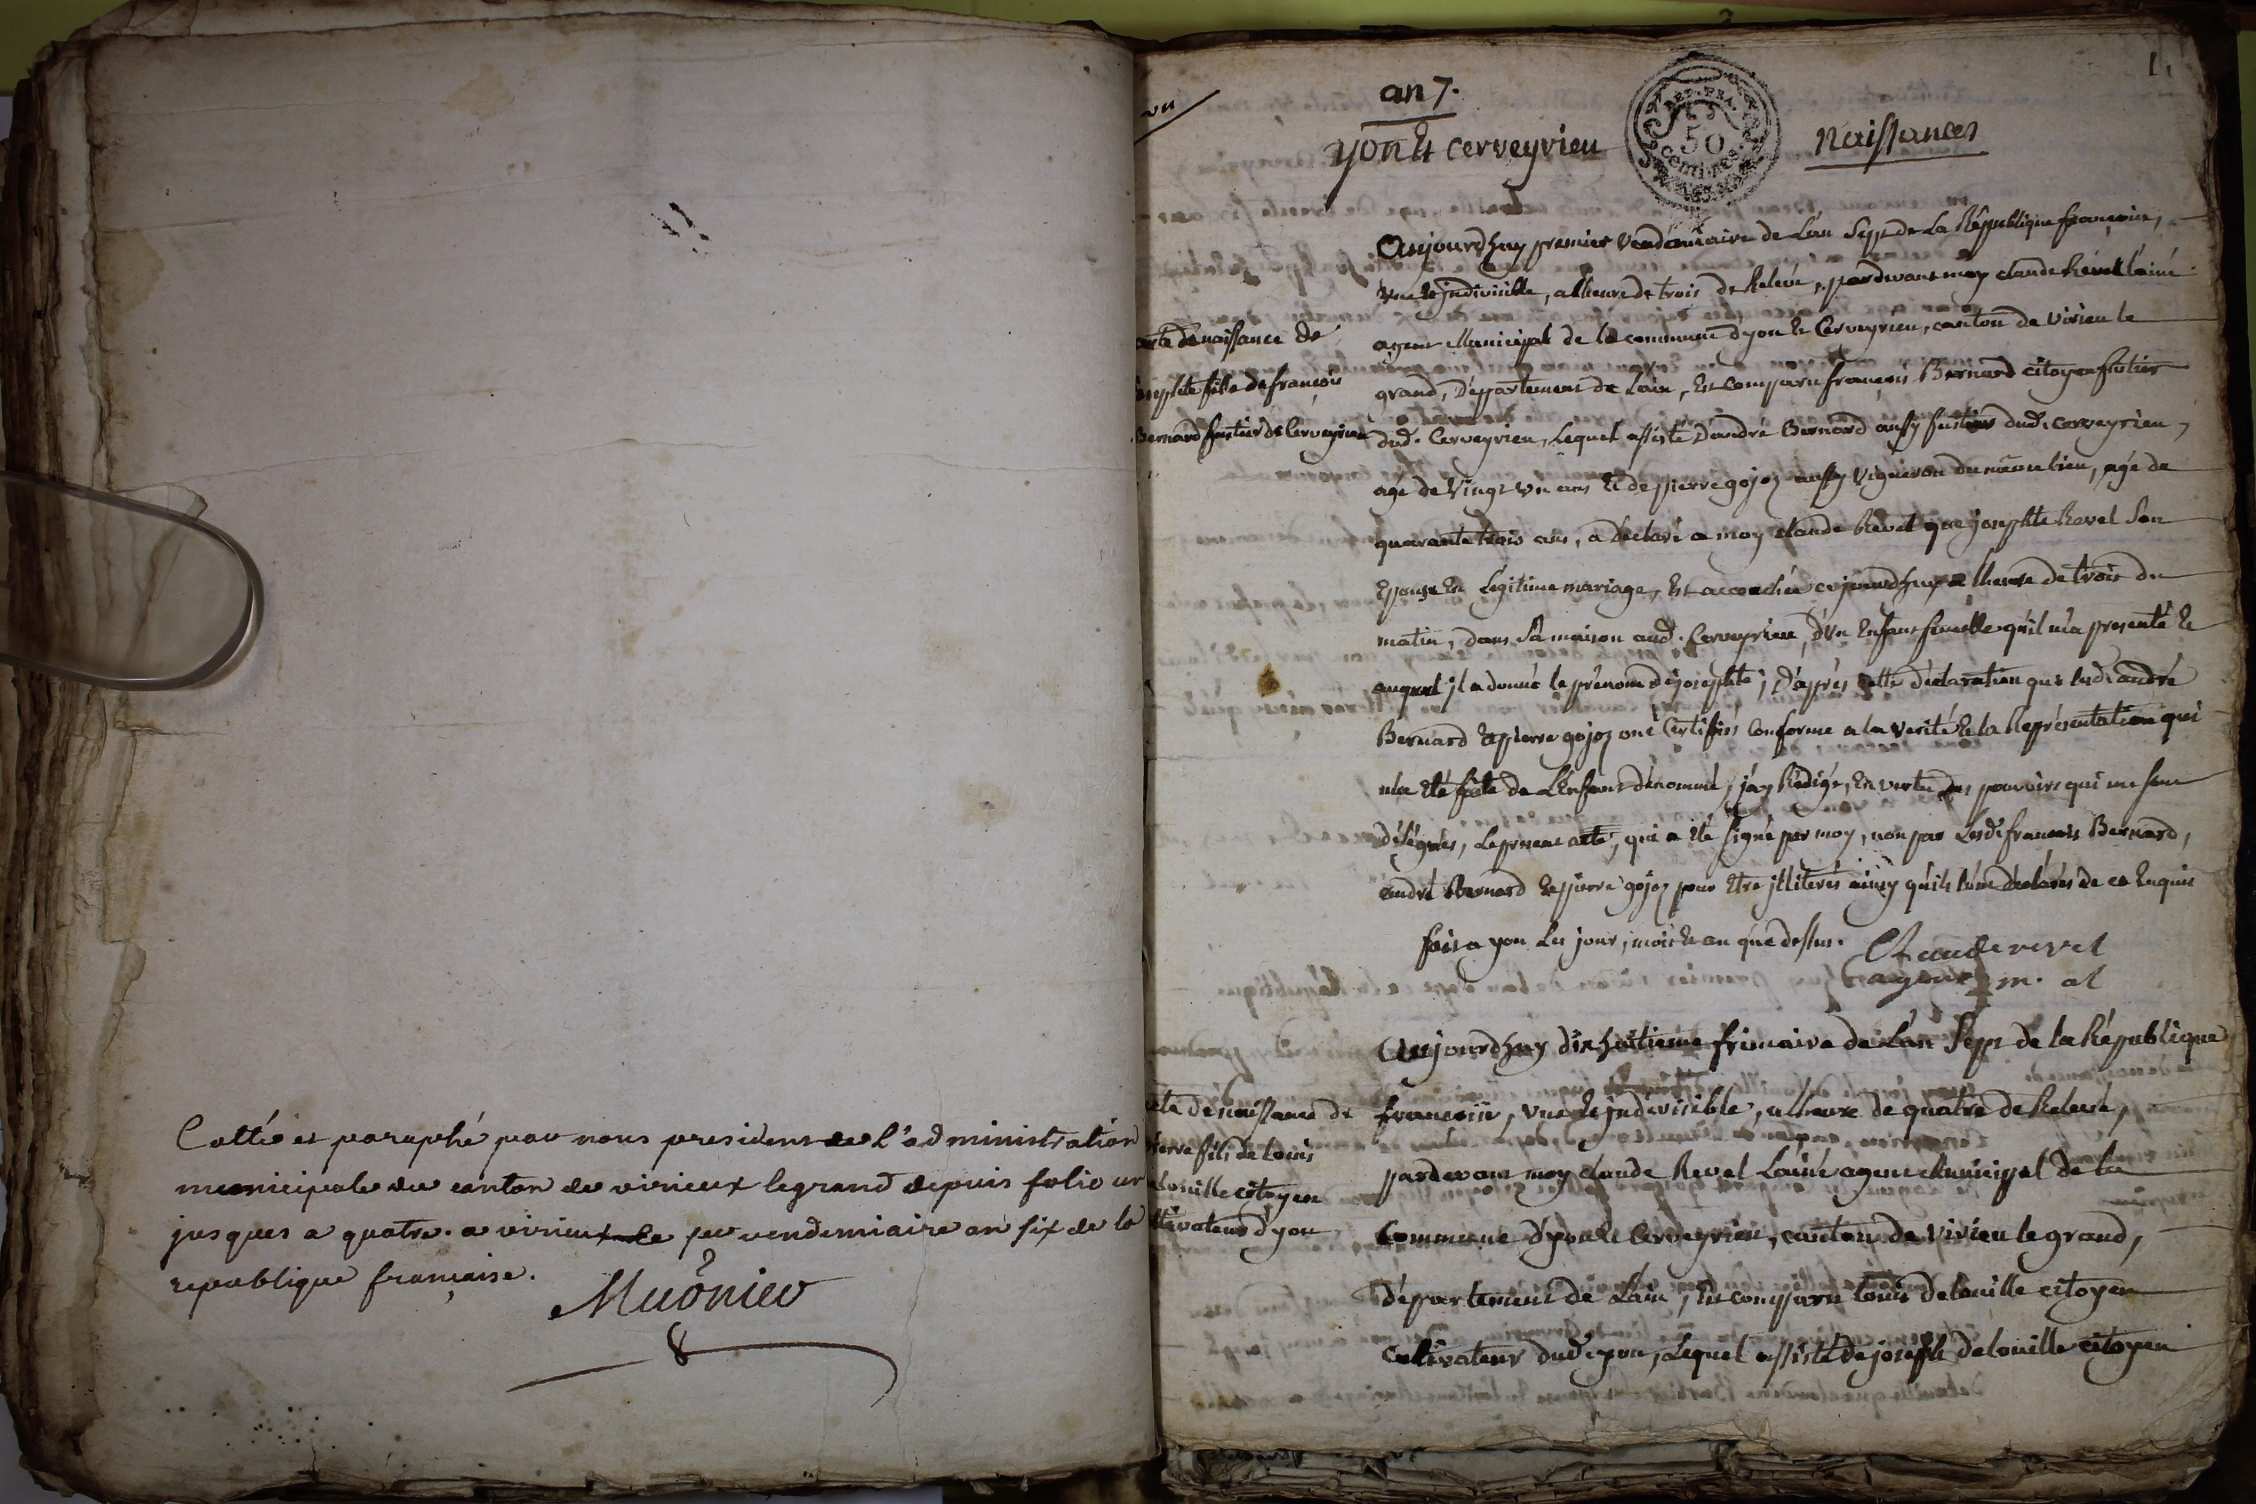 Cottée et paraphé par nous president de l'administration
municipale du canton de virieux legrand depuis folio un
jusques a quatre. a virieux le pr vendemiaire an six de la
republique française.
Muonier
1
an 7.
yon & cerveyrieu
REP. FRA.
50
CENTIMES
Naissances
Aujourdhuy premier vendémiaire de L'an Sept de La République françoise,
une & jndivisible, a lheure de trois de Relevé, pardevant moy claude Revel lainé
agent Municipal de la commune dyon & Cerveyrieu, canton de virieu le
grand, Département de Lain, Est comparu françois Bernard citoyen fustier
dud. Cerveyrieu, Lequel assisté d'andré Bernard aussy fustier dud. cerveyrieu,
agé de vingt un ans & de pierre gojoz aussy vigneron du même lieu, agé de
quarante trois ans, a déclaré a moy claude Revel que josephte Revel Son
Epouse En Légitime mariage, Est accouchée cejourdhuy a lheure de trois du
matin, dans Sa maison aud. Cerveyrieu, d'un Enfant femelle qu'il m'a presenté &
auquel jl a donné le prénom de josephte; D'après cette déclaration que lesd. andré
Bernard & pierre gojoz ont Certifiés Conforme a la verité & la Représentation qui
m'a Eté faite de L'Enfant dénommé, j'ay Rédigé, En vertu des pouvoirs qui me sont
délégués, Le present acte, qui a Eté signé par moy, non par Lesd. francois Bernard,
andré Bernard & pierre gojoz pour Etre jlliterés ainsy qu'ils l'ont déclarés de ce Enquis
fait a yon Les jour, mois & an que dessus.
Claude revel
agent m. al
acte de naissance de
josephte fille de françois
Bernard fustier de Cerveyrieu
Aujourdhuy dixhuitieme frimaire de L'an Sept de la République
francoise, une & jndivisible, a lheure de quatre de Relevé,
pardevant moy claude Revel Lainé agent Municipal de la
Commune d'yon & Cerveyrieu, canton de Virieu le grand,
département de Lain, Est comparu Louis delouille citoyen
Cultivateur dud. yon, Lequel assisté de joseph delouille citoyen
acte de naissance de
pierre fils de Louis
delouille citoyen
cultivateur d'yon